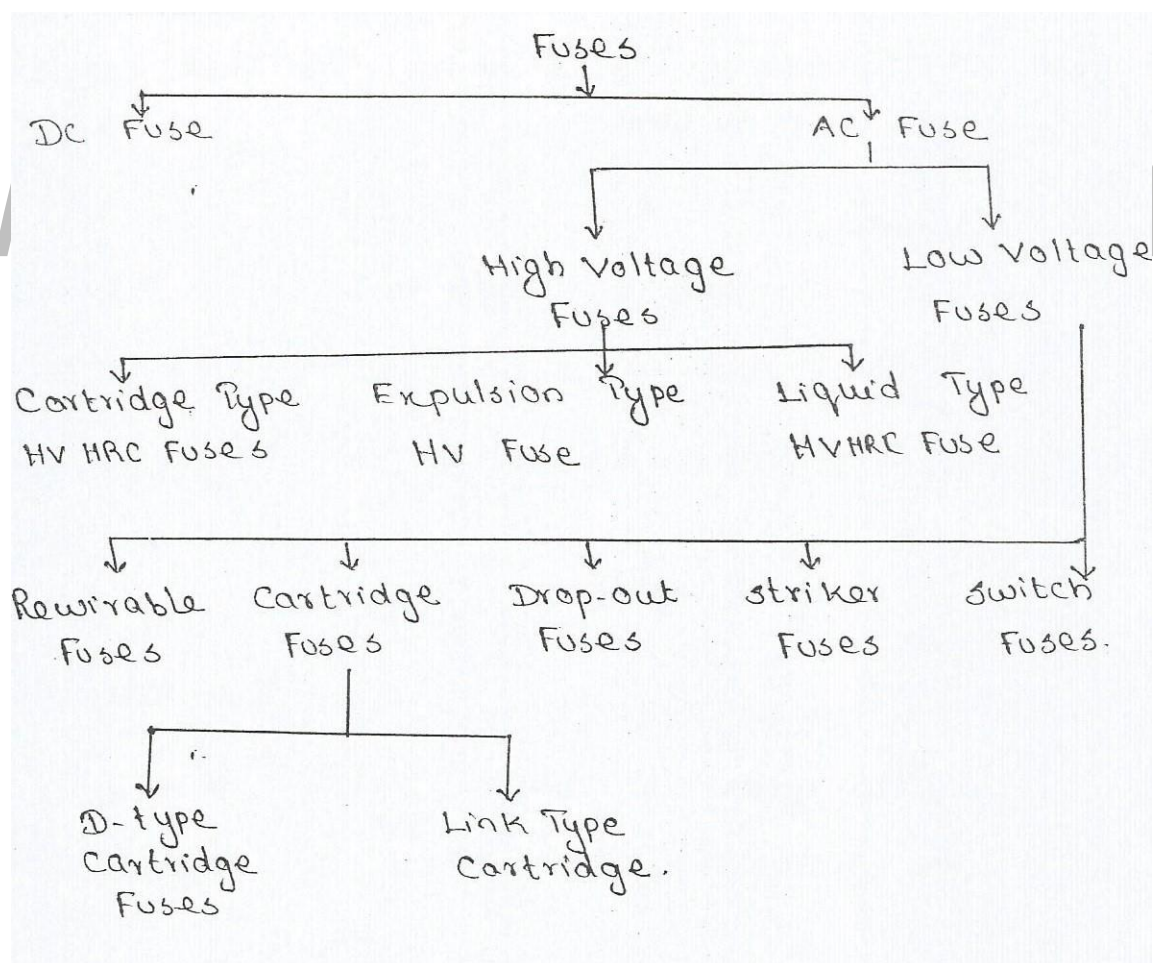 Fuses
DC Fuse
AC Fuse
High Voltage
Fuses
Low Voltage
Fuses
Cartridge Type
HV HRC Fuses
Expulsion Type
HV Fuse
Liquid Type
HV HRC Fuse
Rewirable
Fuses
Cartridge
Fuses
Drop-out
Fuses
Striker
Fuses
Switch
Fuses.
D-type
Cartridge
Fuses
Link Type
Cartridge.